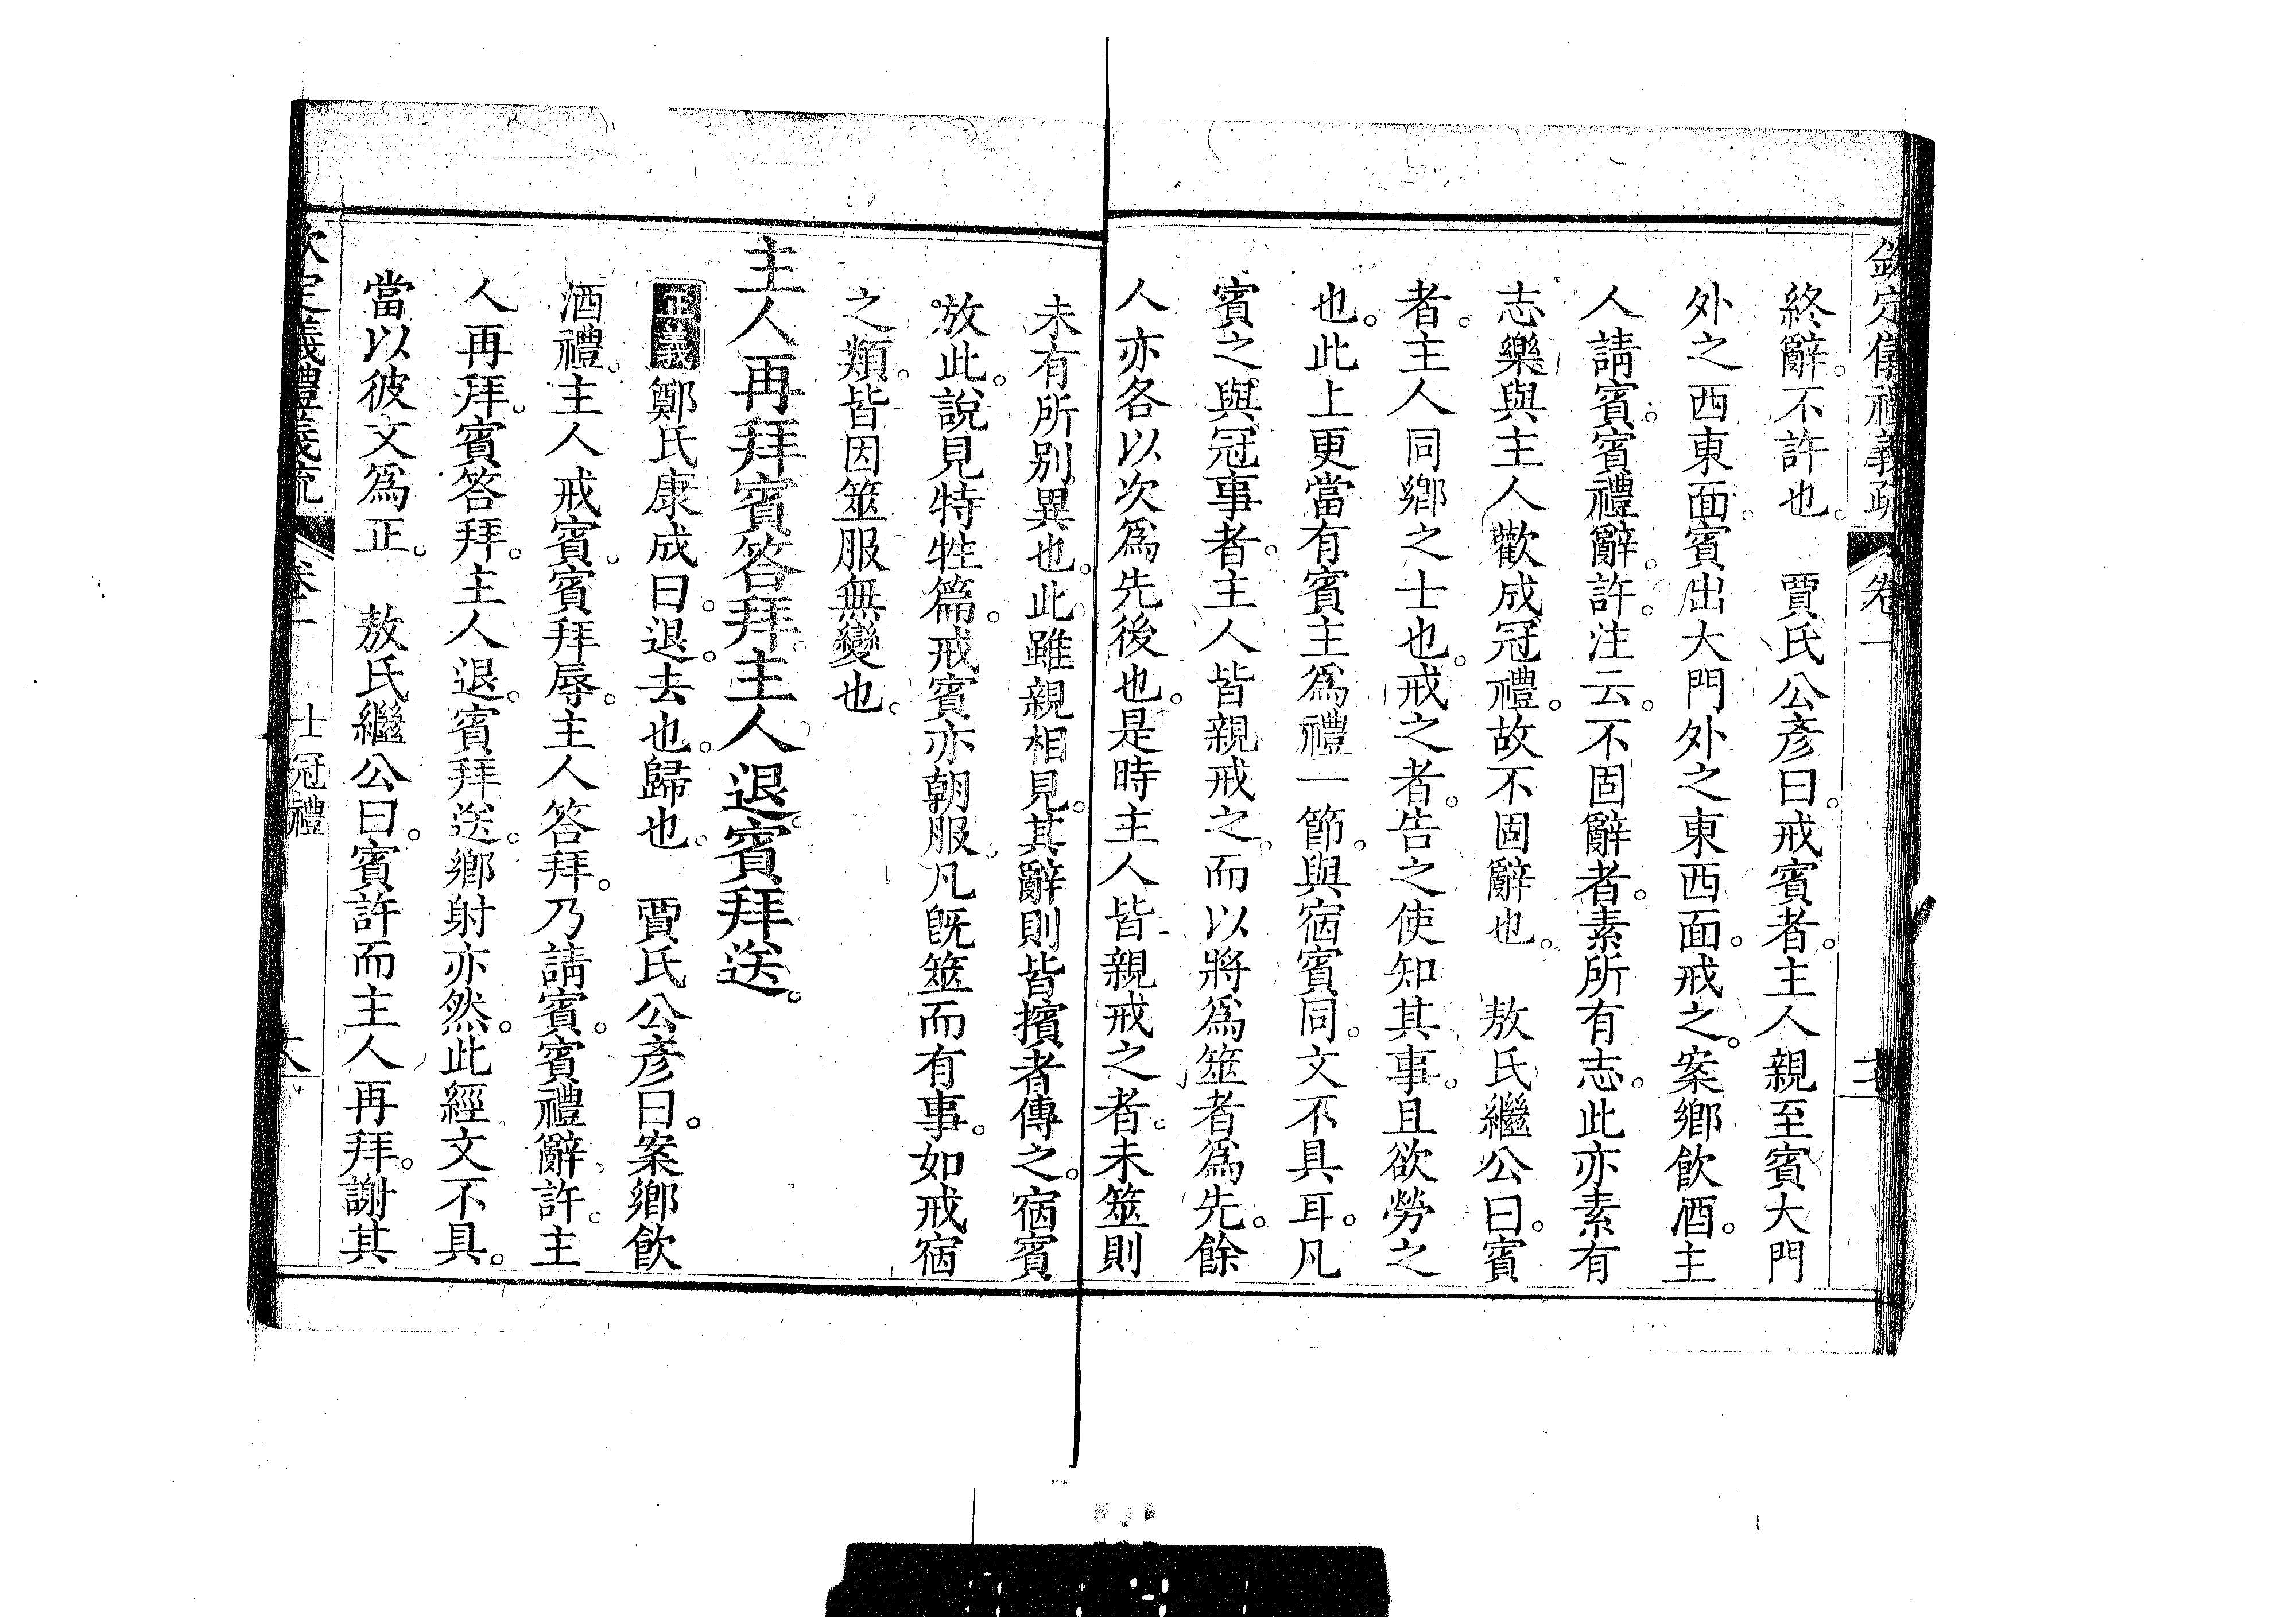 欽定儀禮義疏 卷一
終辭。不許也。 賈氏公彥曰。戒賓者。主人親至賓大門
外之西東面。賓出大門外之東西面。戒之。案鄉飲酒。主
人請賓。賓禮辭。許。注云。不固辭者。素所有志。此亦素有
志樂與主人歡成冠禮。故不固辭也。 敖氏繼公曰。賓
者。主人同鄉之士也。戒之者。告之使知其事。且欲勞之
也。此上更當有賓主爲禮一節。與宿賓同。文不具耳。凡
賓之與冠事者。主人皆親戒之。而以將爲筮者爲先。餘
人亦各以次爲先後也。是時主人皆親戒之者。未筮則
未有所別異也。此雖親相見。其辭則皆擯者傳之。宿賓
放此。說見特牲篇。戒賓亦朝服。凡旣筮而有事。如戒宿
之類。皆因筮服無變也。
主人再拜賓答拜。主人退。賓拜送。
正義 鄭氏康成曰。退。去也。歸也。 賈氏公彥曰。案鄉飲
酒禮。主人戒賓。賓拜辱。主人答拜。乃請賓。賓禮辭。許。主
人再拜。賓答拜。主人退。賓拜送。鄉射亦然。此經文不具。
當以彼文爲正。 敖氏繼公曰。賓許而主人再拜。謝其
欽定儀禮義疏 卷一 士冠禮